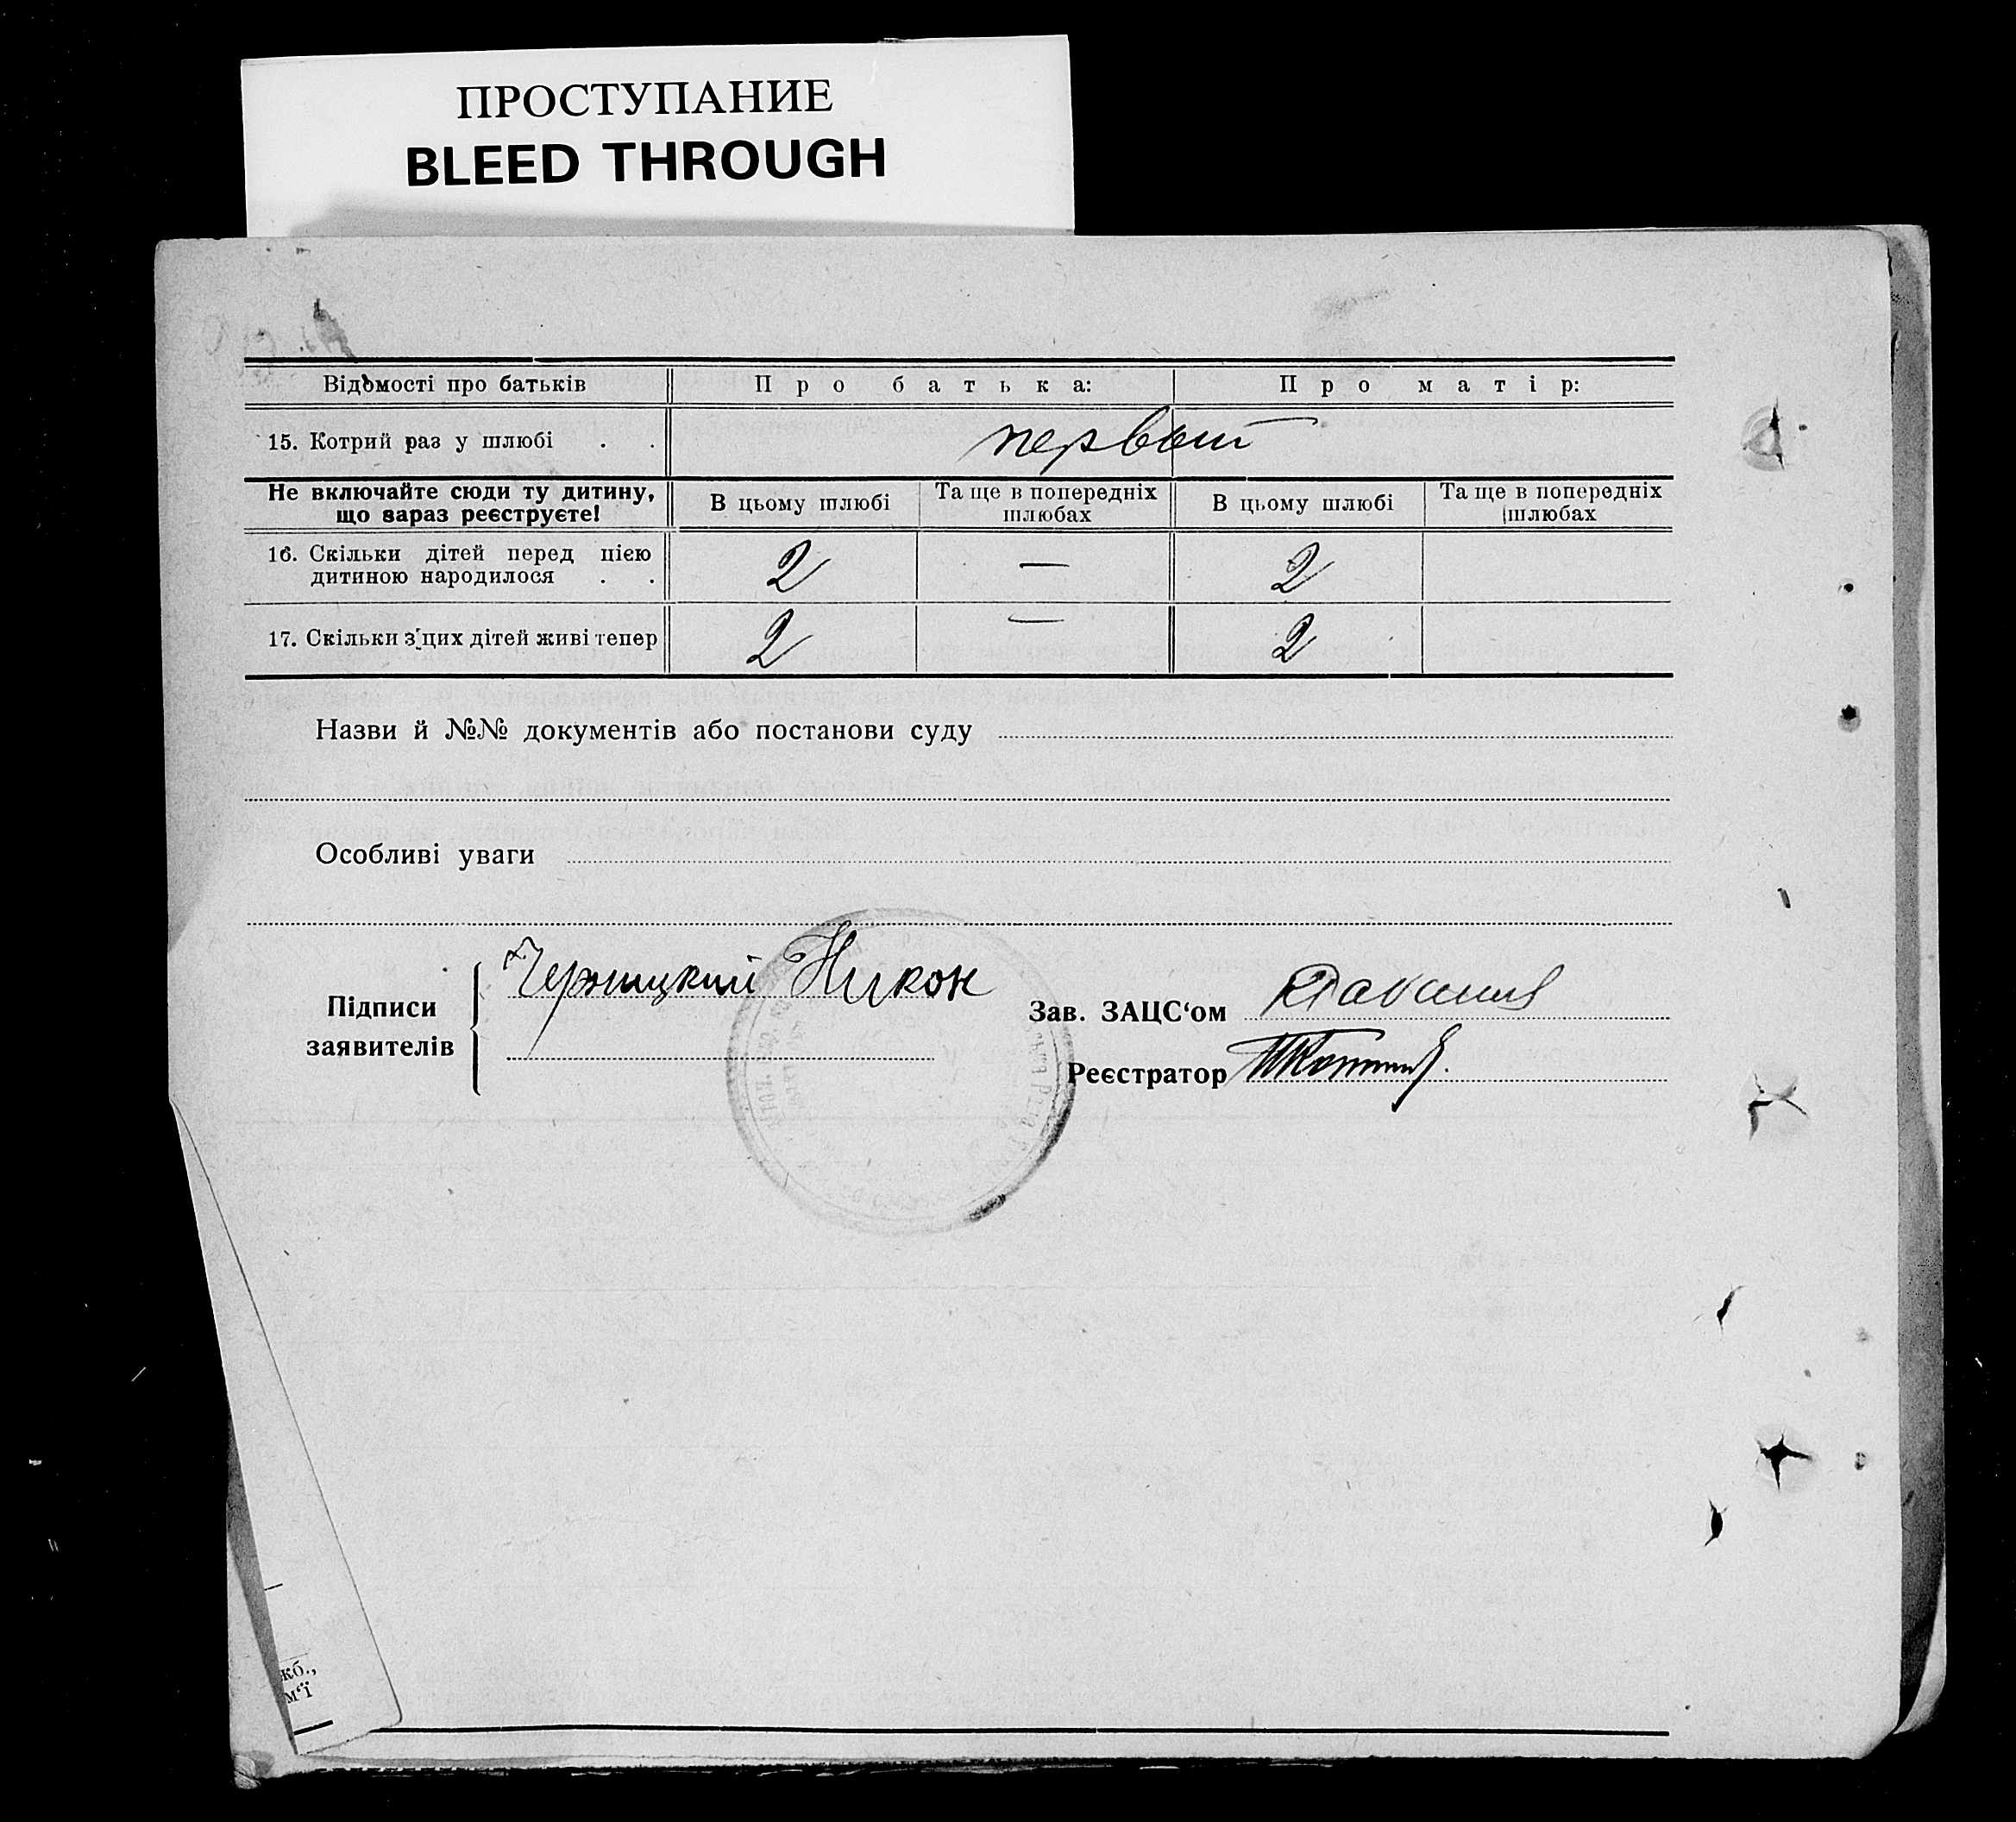 ПРОСТУПАНИЕ
BLEED THROUGH
Відомості про батьків Про батька: Про матір:
15. Котрий раз у шлюбі . . первый
Не включайте сюди ту дитину, що зараз реєструєте! В цьому шлюбі Та ще в попередніх шлюбах В цьому шлюбі Та ще в попередніх шлюбах
16. Скільки дітей перед цією дитиною народилося . . 2 — 2
17. Скільки з цих дітей живі тепер 2 — 2
Назви й №№ документів або постанови суду
Особливі уваги
Підписи заявителів Черницкий Никон
Зав. ЗАЦС‘ом
Реєстратор
жб.,
м‘ї